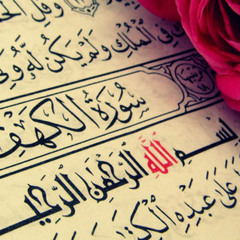 وَقُلِ الْحَ
فِي الْمُلْكِ وَلَمْ يَكُنْ لَهُ وَلِيّ
سُورَةُ الْكَهْفِ
بِسْمِ اللَّهِ الرَّحْمَٰنِ الرَّحِي
عَلَىٰ عَبْدِهِ الْكِتَ